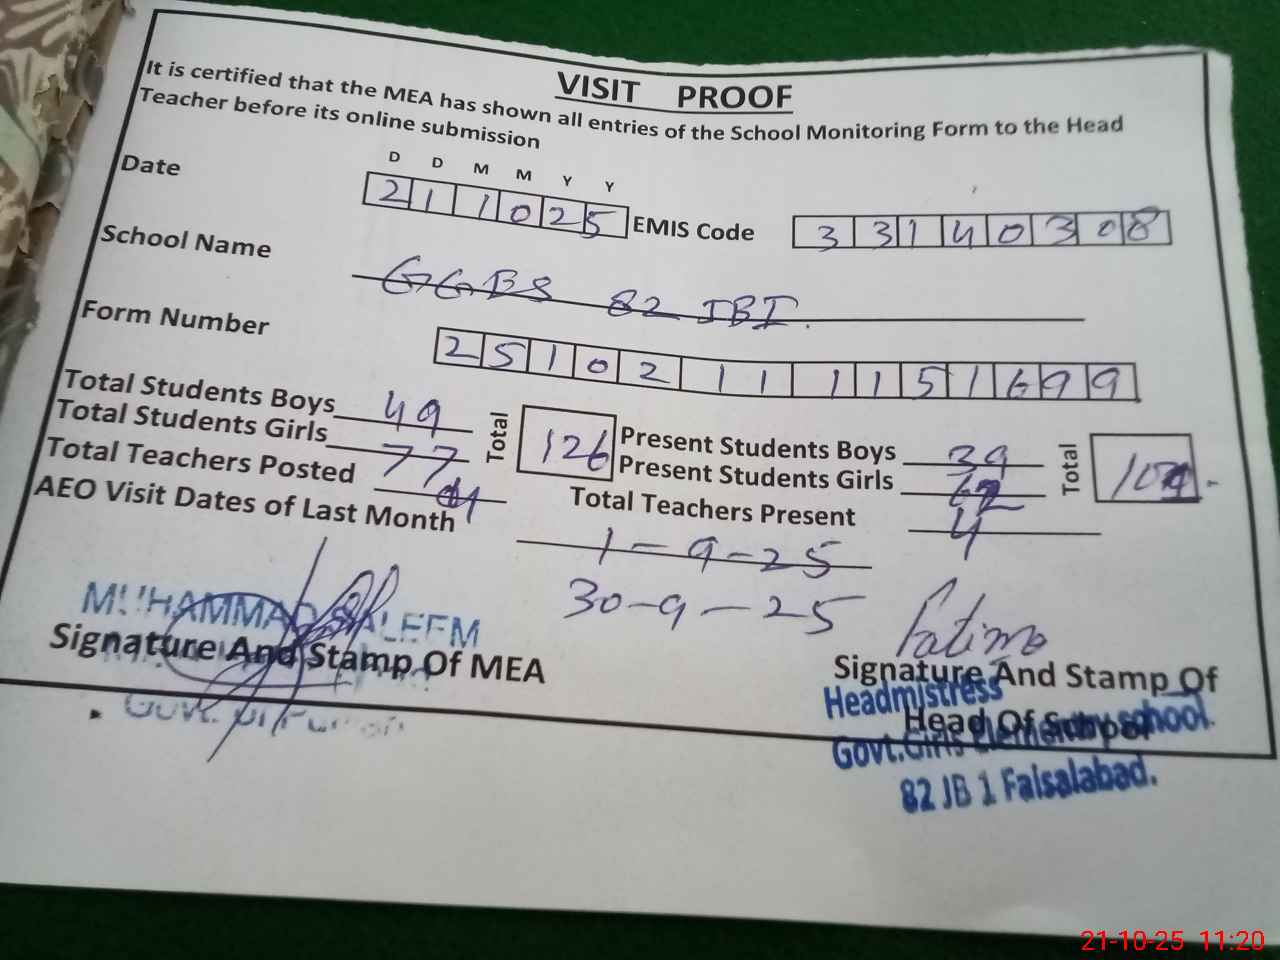 VISIT PROOF
It is certified that the MEA has shown all entries of the School Monitoring Form to the Head
Teacher before its online submission
D D M M Y Y
Date 2 1 1 0 2 5 EMIS Code 3 3 1 4 0 3 0 8
School Name GGES 82 JBI.
Form Number 2 5 1 0 2 1 1 1 1 5 1 6 9 9
Total Students Boys 49 Total 126 Present Students Boys 39 Total
Total Students Girls 77 Present Students Girls
Total Teachers Posted 04 Total Teachers Present 4
AEO Visit Dates of Last Month 1-9-25
30-9-25
MUHAMMAD SALEEM
Signature And Stamp Of MEA
Govt. of
Fatima
Signature And Stamp Of
Head Of School
Headmistress
Govt.Girls Elementry school.
82 JB 1 Faisalabad.
21-10-25 11:20